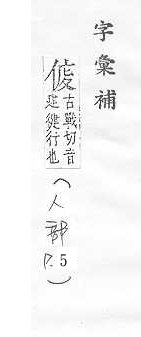 字彙補
古戰切音
建健行也
(人部
P.5)